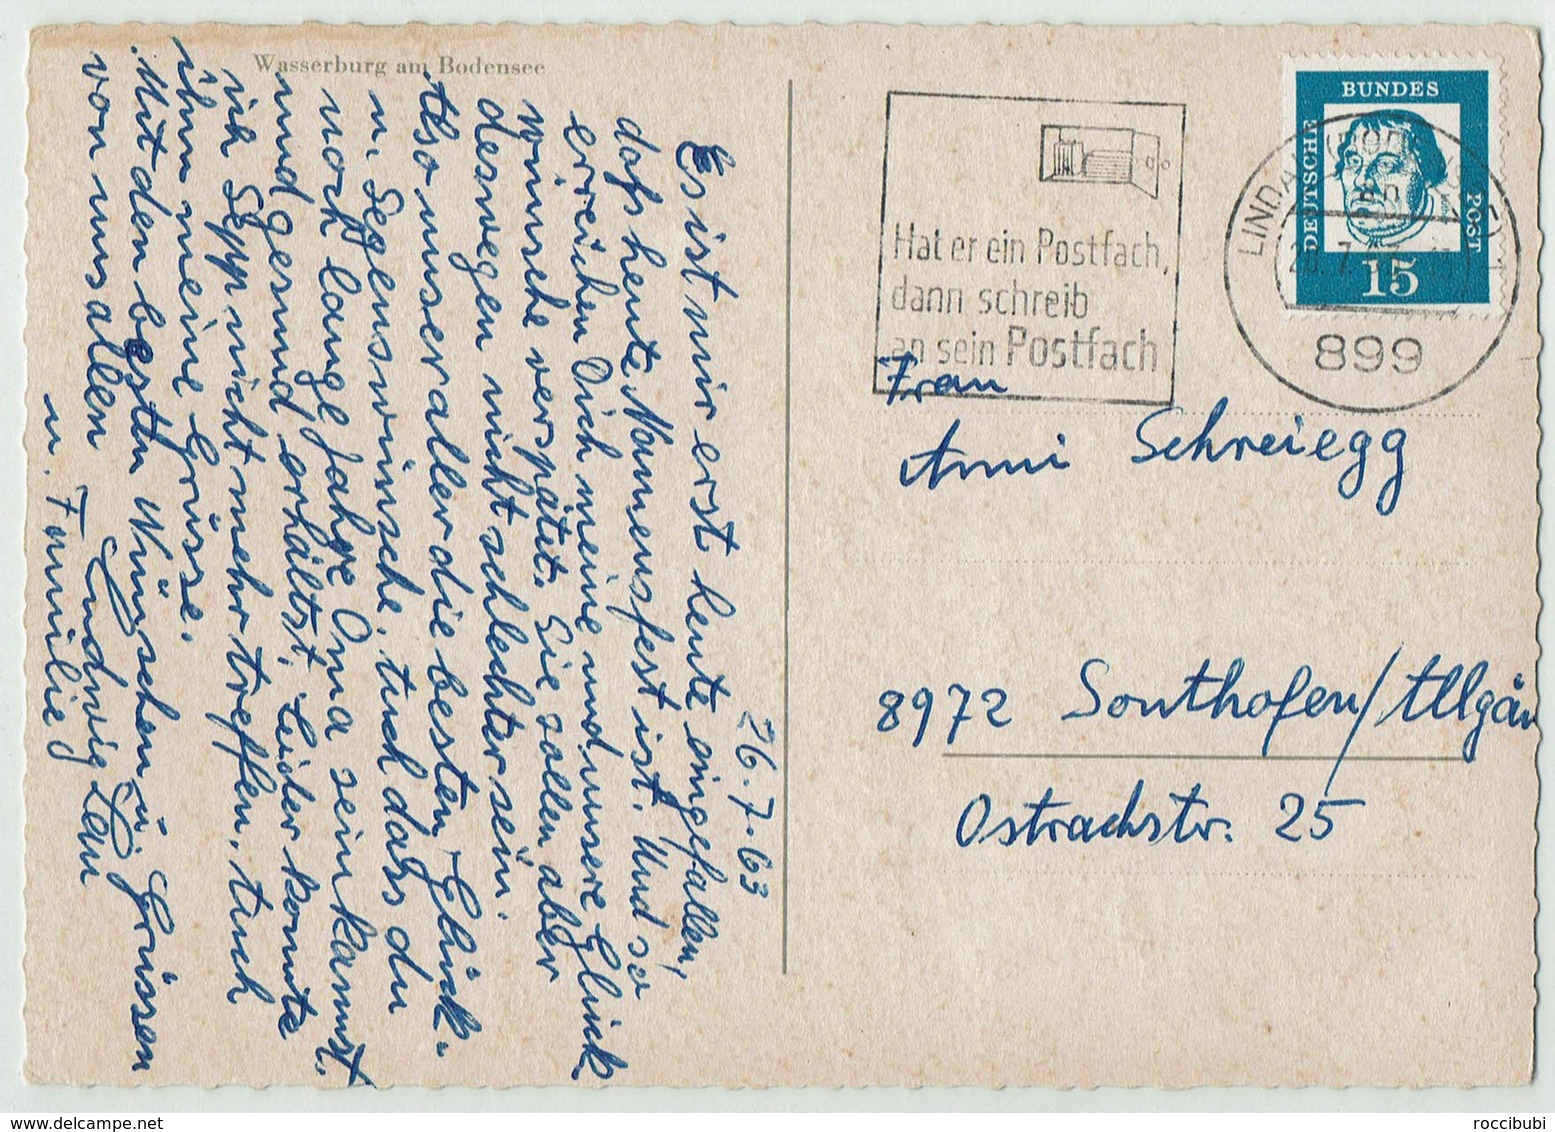 Wasserburg am Bodensee
26.7.63
Es ist mir erst heute eingefallen,
dass heute Namensfest ist. Und so
erreichen Dich meine und unsere Glück
wünsche verspätet. Sie sollen aber
deswegen nicht schlechter sein.
Also unser aller die besten Glück-
u. Segenswünsche. Auch dass du
noch lange Jahre Oma sein kannst.
und gesund erhältst. Leider konnte
ich Sepp nicht mehr treffen. Auch
ihm meine Grüsse.
Mit den besten Wünschen u. Grüssen
von uns allen Ludwig
u. Familie
Hat er ein Postfach,
dann schreib
an sein Postfach
DEUTSCHE
BUNDES
POST
15
LINDAU (BODENSEE)
899
Frau
Anni Schreiegg
8972 Sonthofen/Allgäu
Ostrachstr. 25
roccibubi